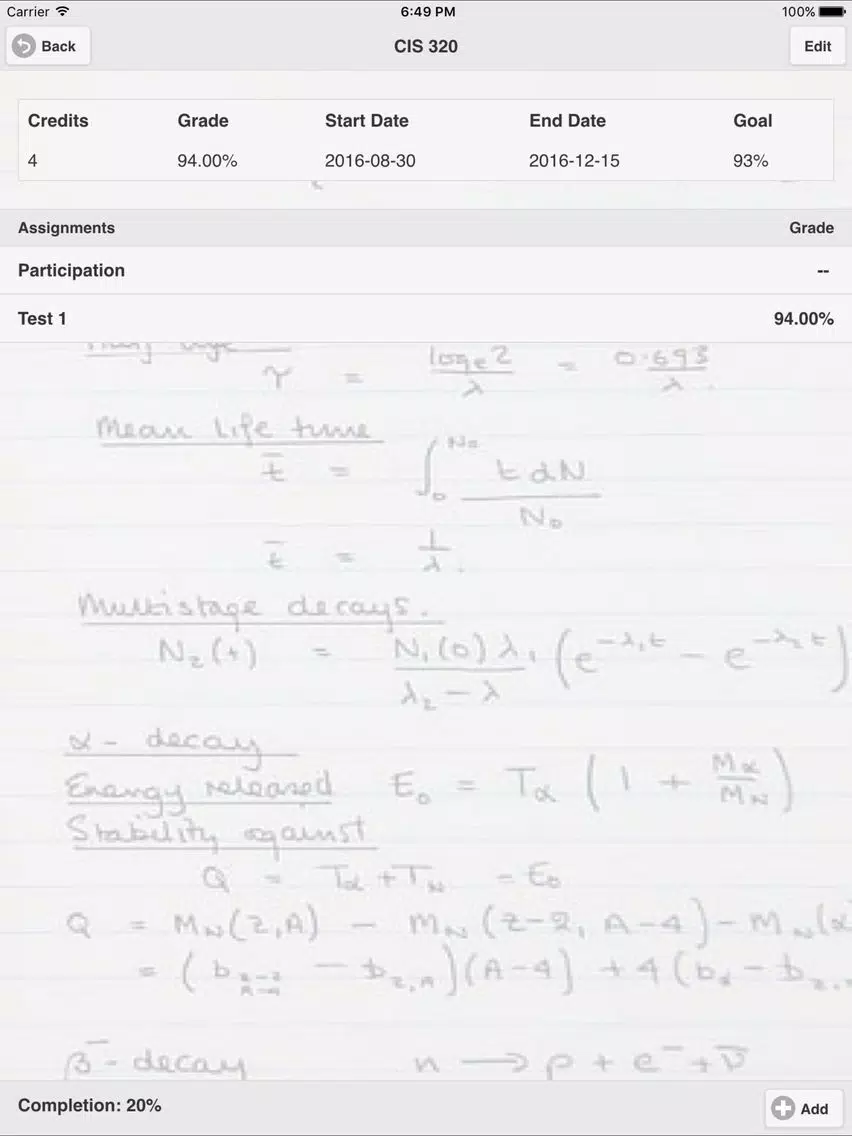 Carrier 6:49 PM 100%
Back CIS 320 Edit
Credits Grade Start Date End Date Goal
4 94.00% 2016-08-30 2016-12-15 93%
Assignments Grade
Participation --
Test 1 94.00%
τ = logₑ2/λ = 0.693/λ.
Mean Life time
t̄ = ∫₀^N₀ t dN / N₀
t̄ = 1/λ.
Multistage decays.
N₂(t) = N₁(0) λ₁/λ₂ - λ (e^-λ₁t - e^-λ₂t)
α - decay
Energy released E₀ = Tα (1 + Mα/MN)
Stability against
Q = Tα + TN = E₀
Q = MN(Z,A) - MN(Z-2, A-4) - MN(α
= (b Z-2 A-4 - b Z,A)(A-4) + 4(bα - b Z,
β⁻ - decay n → p + e⁻ + ν̄
Completion: 20% Add